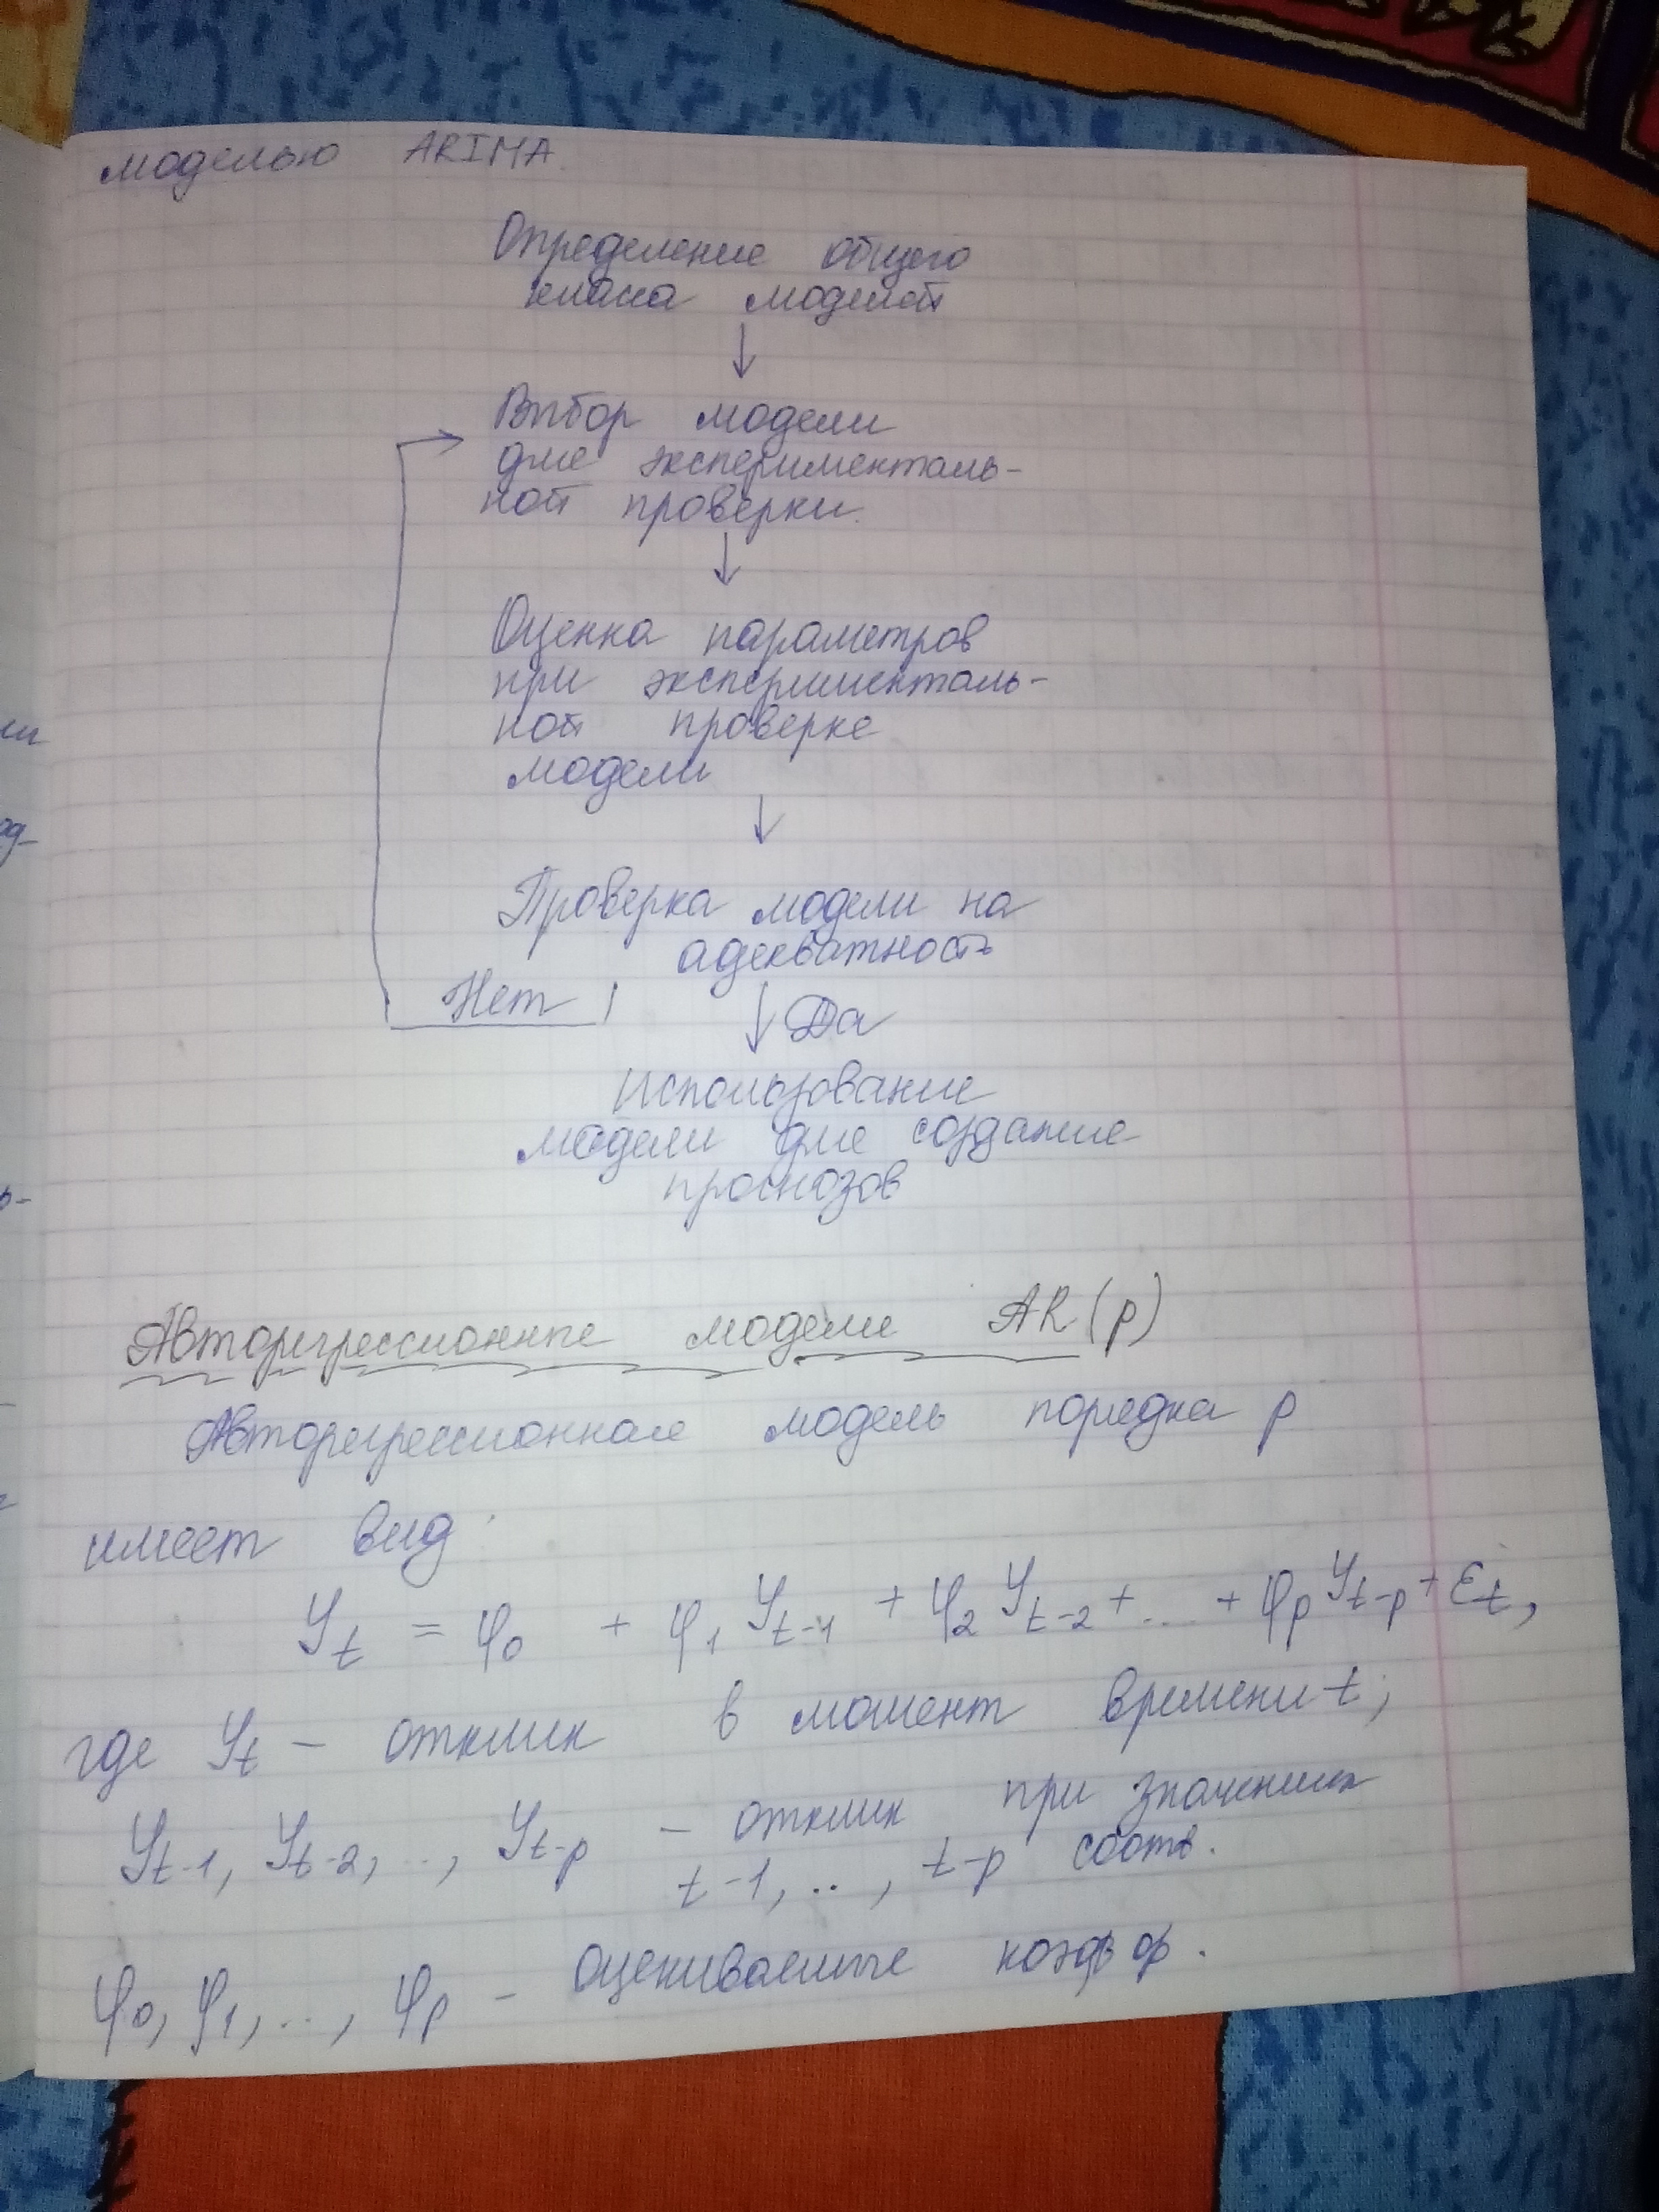 моделью ARIMA.
Определение общего
класса моделей
Выбор модели
для эксперименталь-
ной проверки.
Оценка параметров
при эксперименталь-
ной проверке
модели
Проверка модели на
адекватность
Нет
Да
Использование
модели для создания
прогнозов
Авторегрессионные модели AR(p)
Авторегрессионная модель порядка p
имеет вид:
Yt = φ0 + φ1 Yt-1 + φ2 Yt-2 + ... + φp Yt-p + εt,
где Yt – отклик в момент времени t;
Yt-1, Yt-2, .., Yt-p – отклик при значениях
t-1, .. , t-p соотв.
φ0, φ1, .. , φp – оцениваемые коэфф.